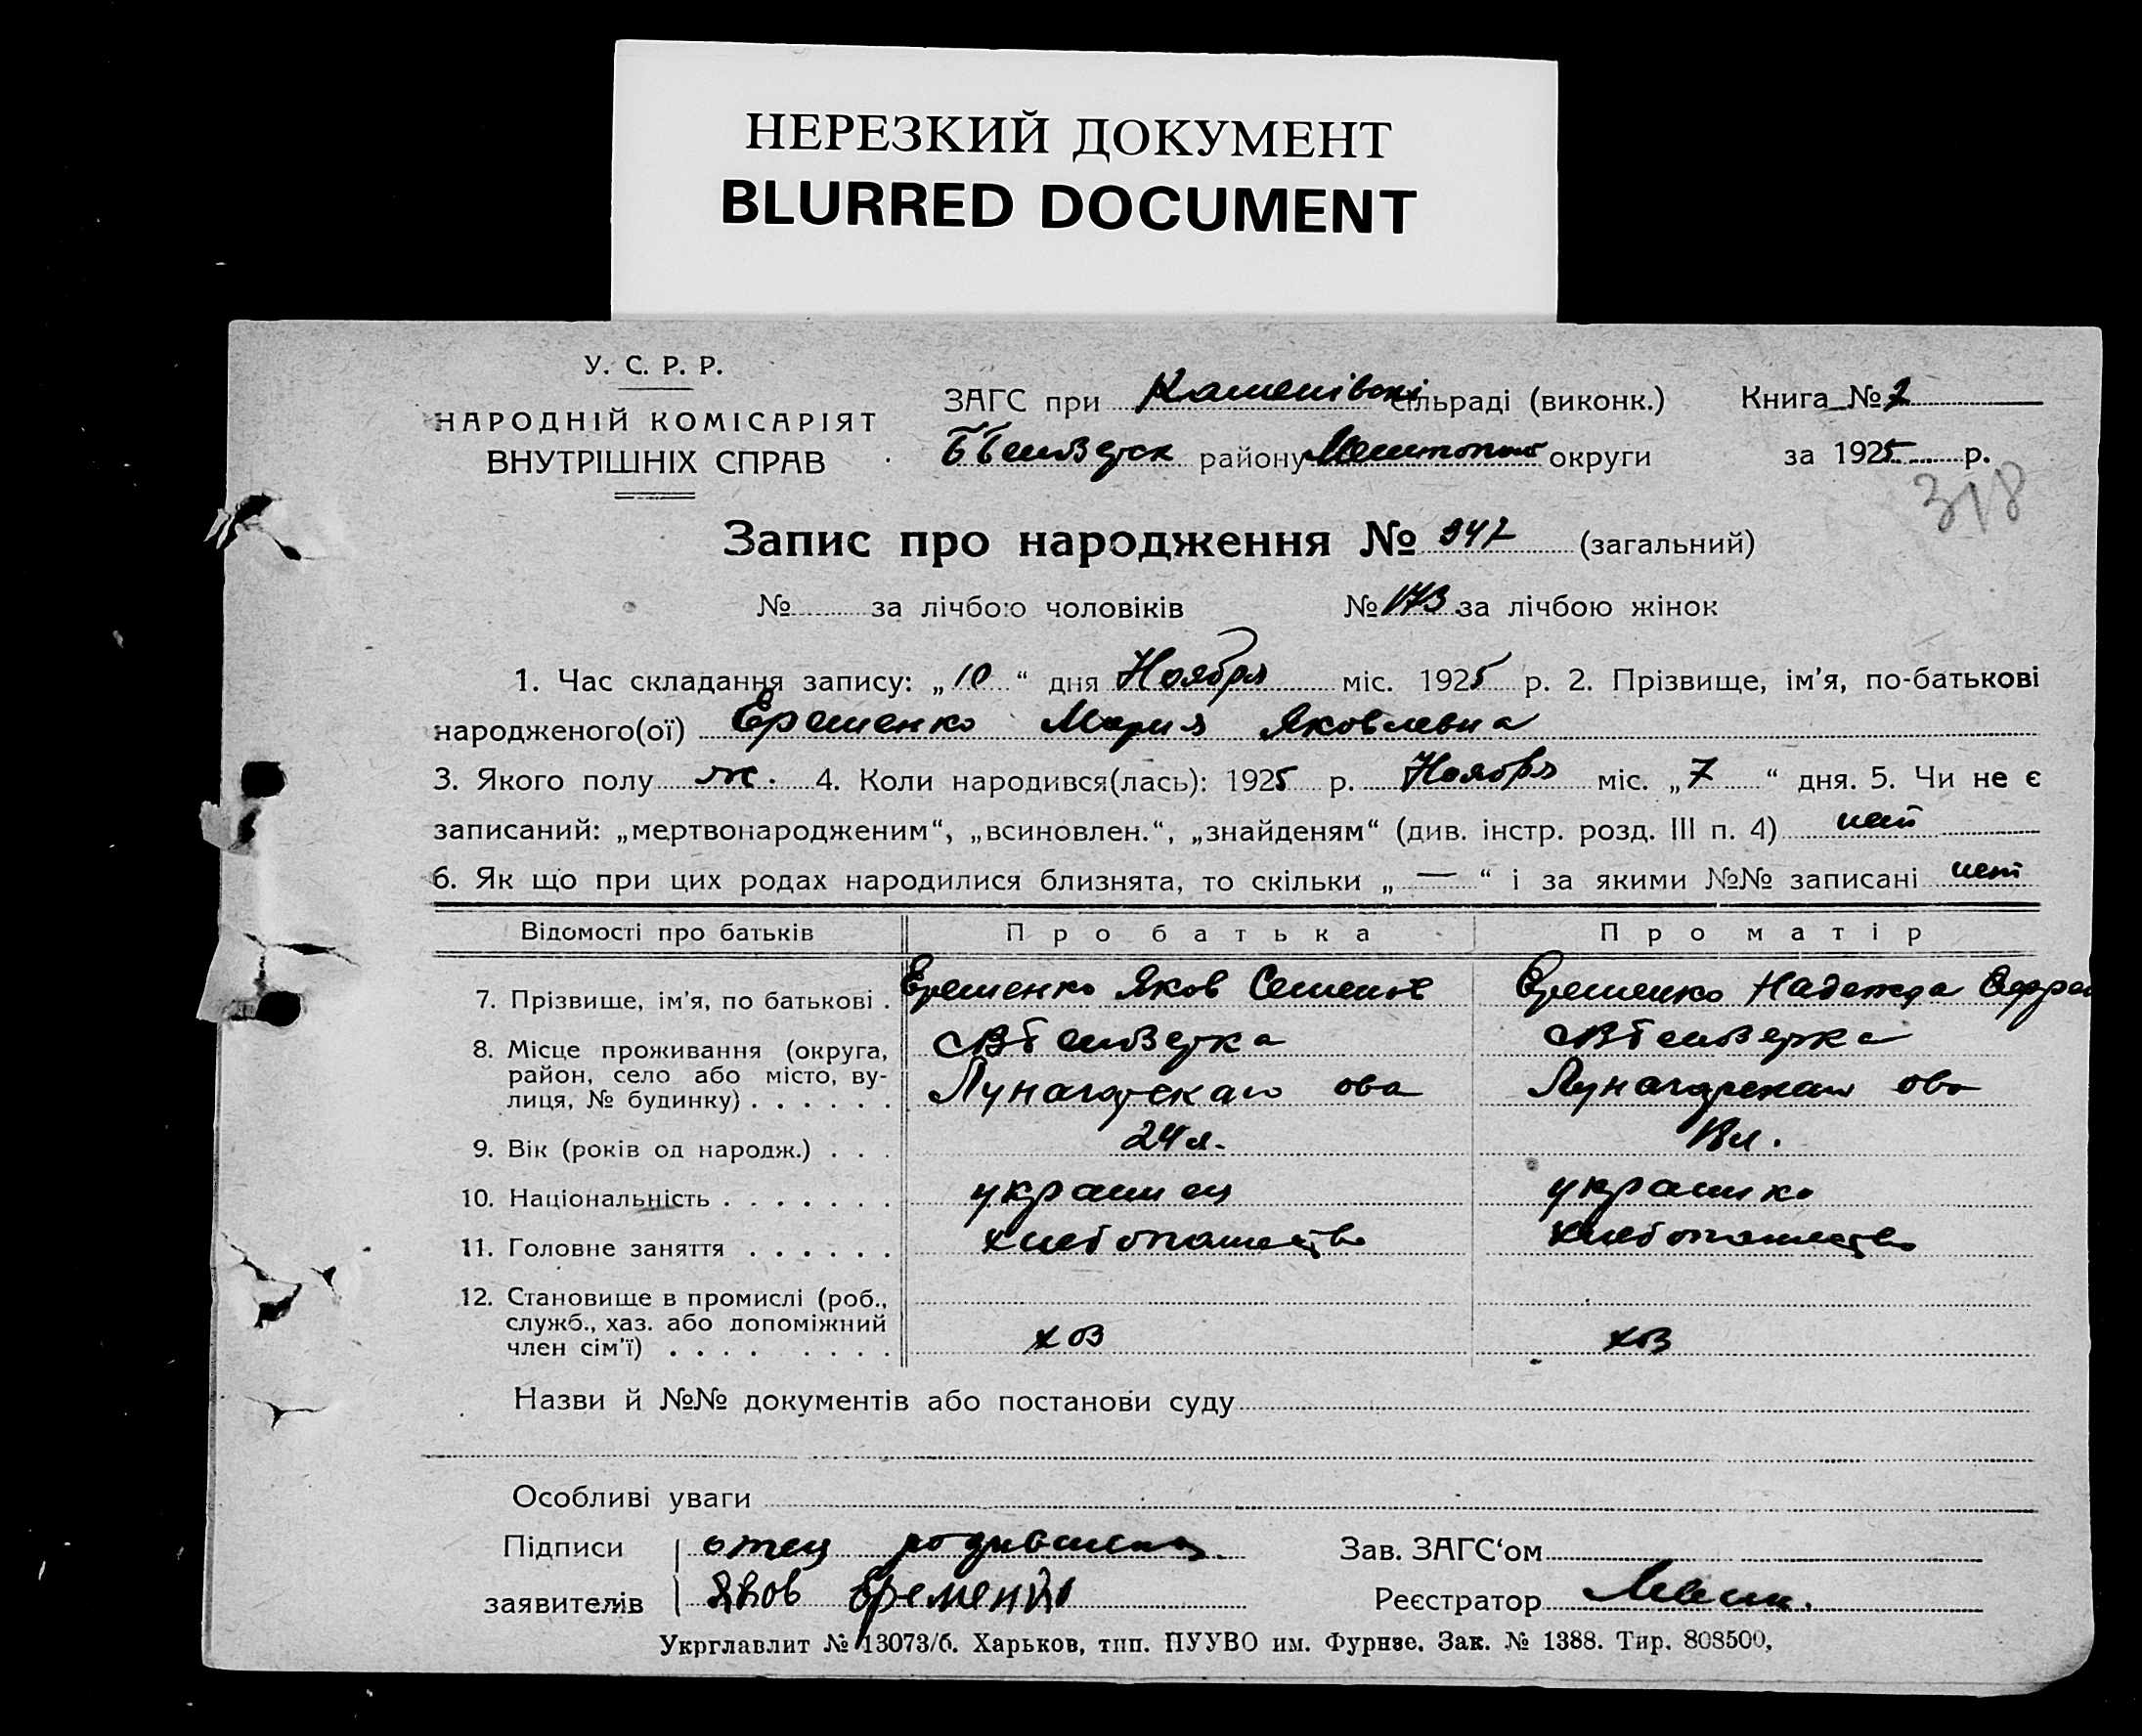 НЕРЕЗКИЙ ДОКУМЕНТ
BLURRED DOCUMENT
У. С. Р. Р.
НАРОДНІЙ КОМІСАРІЯТ
ВНУТРІШНІХ СПРАВ
ЗАГС при сільраді (виконк.)
району округи
Книга №
за 1925 р.
318
Запис про народження № 347 (загальний)
№ за лічбою чоловіків № 173 за лічбою жінок
1. Час складання запису: „10“ дня Ноября міс. 1925 р. 2. Прізвище, ім'я, по-батькові
народженого(ої) Ерёменко Мария Яковлевна
3. Якого полу ж. 4. Коли народився(лась): 1925 р. Ноября міс. „7“ дня. 5. Чи не є
записаний: „мертвонародженим“, „всиновлен.“, „знайденям“ (див. інстр. розд. III п. 4) нет
6. Як що при цих родах народилися близнята, то скільки „—“ і за якими №№ записані нет
Відомості про батьків Про батька Про матір
7. Прізвище, ім'я, по батькові . Еременко Яков Семенов Еременко Надежда
8. Місце проживання (округа,
район, село або місто, ву-
лиця, № будинку) . . . . . .
9. Вік (років од народж.) . . . 24 л. 18 л.
10. Національність . . . . . . . украинец украинка
11. Головне заняття . . . . . . хлебопашество хлебопашество
12. Становище в промислі (роб.,
служб., хаз. або допоміжний
член сім'ї) . . . . . . . . хоз хоз
Назви й №№ документів або постанови суду
Особливі уваги
Підписи отец родившейся Зав. ЗАГС'ом
заявителів Яков Еременко Реєстратор
Укрглавлит № 13073/б. Харьков, тип. ПУУВО им. Фрунзе. Зак. № 1388. Тир. 808500.